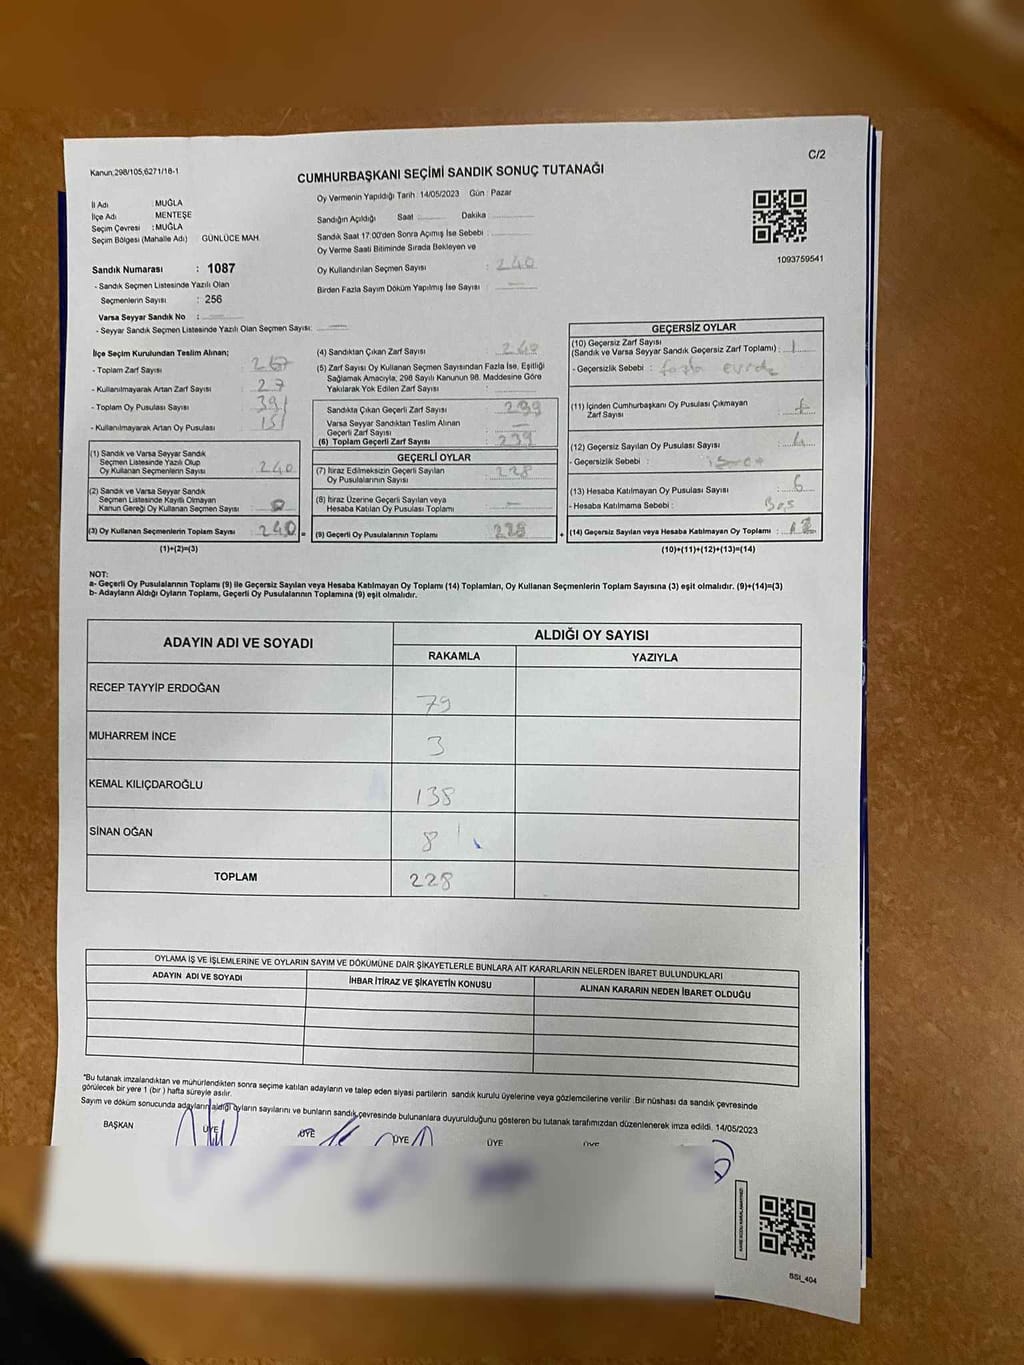 C/2
Kanun,298/105,6271/18-1
CUMHURBAŞKANI SEÇİMİ SANDIK SONUÇ TUTANAĞI
Oy Vermenin Yapıldığı Tarih : 14/05/2023 Gün : Pazar
İl Adı : MUĞLA
İlçe Adı : MENTEŞE
Seçim Çevresi : MUĞLA
Seçim Bölgesi (Mahalle Adı) GÜNLÜCE MAH.
Sandığın Açıldığı Saat ........ Dakika ........
Sandık Saat 17:00'den Sonra Açımış İse Sebebi :
Oy Verme Saati Bitiminde Sırada Bekleyen ve
Oy Kullandırılan Seçmen Sayısı : 240
Birden Fazla Sayım Döküm Yapılmış İse Sayısı : —
1093759541
Sandık Numarası : 1087
- Sandık Seçmen Listesinde Yazılı Olan
Seçmenlerin Sayısı : 256
Varsa Seyyar Sandık No : —
- Seyyar Sandık Seçmen Listesinde Yazılı Olan Seçmen Sayısı: —
İlçe Seçim Kurulundan Teslim Alınan;
- Toplam Zarf Sayısı 267
- Kullanılmayarak Artan Zarf Sayısı : 27
- Toplam Oy Pusulası Sayısı : 391
- Kullanılmayarak Artan Oy Pusulası : 151
(1) Sandık ve Varsa Seyyar Sandık
Seçmen Listesinde Yazılı Olup
Oy Kullanan Seçmenlerin Sayısı : 240
(2) Sandık ve Varsa Seyyar Sandık
Seçmen Listesinde Kayıtlı Olmayan
Kanun Gereği Oy Kullanan Seçmen Sayısı : 0
(3) Oy Kullanan Seçmenlerin Toplam Sayısı : 240
(1)+(2)=(3)
(4) Sandıktan Çıkan Zarf Sayısı : 240
(5) Zarf Sayısı Oy Kullanan Seçmen Sayısından Fazla İse, Eşitliği
Sağlamak Amacıyla; 298 Sayılı Kanunun 98. Maddesine Göre
Yakılarak Yok Edilen Zarf Sayısı :
Sandıkta Çıkan Geçerli Zarf Sayısı : 239
Varsa Seyyar Sandıktan Teslim Alınan
Geçerli Zarf Sayısı : —
(6) Toplam Geçerli Zarf Sayısı : 239
GEÇERLİ OYLAR
(7) İtiraz Edilmeksizin Geçerli Sayılan
Oy Pusulalarının Sayısı : 228
(8) İtiraz Üzerine Geçerli Sayılan veya
Hesaba Katılan Oy Pusulası Toplamı : —
(9) Geçerli Oy Pusulalarının Toplamı : 228
GEÇERSİZ OYLAR
(10) Geçersiz Zarf Sayısı
(Sandık ve Varsa Seyyar Sandık Geçersiz Zarf Toplamı) : 1
- Geçersizlik Sebebi : fazla
(11) İçinden Cumhurbaşkanı Oy Pusulası Çıkmayan
Zarf Sayısı :
(12) Geçersiz Sayılan Oy Pusulası Sayısı : 4
- Geçersizlik Sebebi :
(13) Hesaba Katılmayan Oy Pusulası Sayısı : 6
- Hesaba Katılmama Sebebi : Boş
(14) Geçersiz Sayılan veya Hesaba Katılmayan Oy Toplamı : 12
(10)+(11)+(12)+(13)=(14)
NOT:
a- Geçerli Oy Pusulalarının Toplamı (9) ile Geçersiz Sayılan veya Hesaba Katılmayan Oy Toplamı (14) Toplamları, Oy Kullanan Seçmenlerin Toplam Sayısına (3) eşit olmalıdır. (9)+(14)=(3)
b- Adayların Aldığı Oyların Toplamı, Geçerli Oy Pusulalarının Toplamına (9) eşit olmalıdır.
ADAYIN ADI VE SOYADI
ALDIĞI OY SAYISI
RAKAMLA YAZIYLA
RECEP TAYYİP ERDOĞAN 79
MUHARREM İNCE 3
KEMAL KILIÇDAROĞLU 138
SİNAN OĞAN 8
TOPLAM 228
OYLAMA İŞ VE İŞLEMLERİNE VE OYLARIN SAYIM VE DÖKÜMÜNE DAİR ŞİKAYETLERLE BUNLARA AİT KARARLARIN NELERDEN İBARET BULUNDUKLARI
ADAYIN ADI VE SOYADI İHBAR İTİRAZ VE ŞİKAYETİN KONUSU ALINAN KARARIN NEDEN İBARET OLDUĞU
*Bu tutanak imzalandıktan ve mühürlendikten sonra seçime katılan adayların ve talep eden siyasi partilerin sandık kurulu üyelerine veya gözlemcilerine verilir .Bir nüshası da sandık çevresinde
görülecek bir yere 1 (bir ) hafta süreyle asılır.
Sayım ve döküm sonucunda adayların aldığı oyların sayılarını ve bunların sandık çevresinde bulunanlara duyurulduğunu gösteren bu tutanak tarafımızdan düzenlenerek imza edildi. 14/05/2023
BAŞKAN ÜYE ÜYE ÜYE ÜYE ÜYE
BSI_404